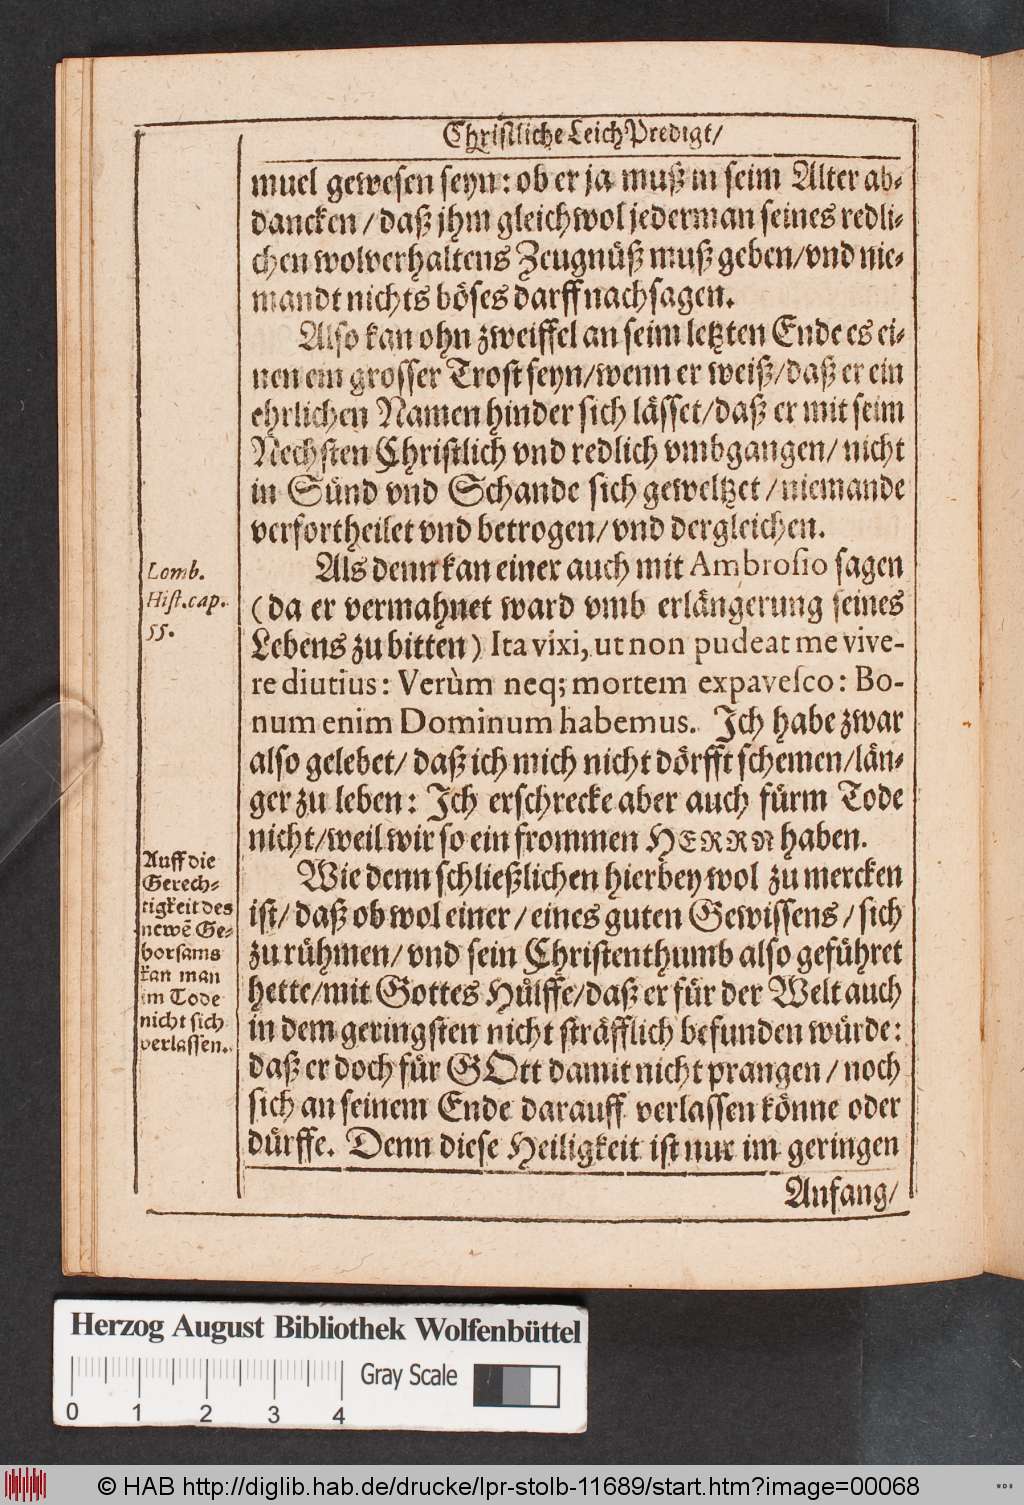 Christliche LeichPredigt/
muel gewesen seyn: ob er ja muß in seim Alter ab-
dancken / daß jhm gleichwol jederman seines redli-
chen wolverhaltens Zeugnüß muß geben/vnd nie-
mandt nichts böses darff nachsagen.
Also kan ohn zweiffel an seim letzten Ende es ei-
nen ein grosser Trost seyn/wenn er weiß/daß er ein
ehrlichen Namen hinder sich lässet/daß er mit seim
Nechsten Christlich vnd redlich vmbgangen/ nicht
in Sünd vnd Schande sich geweltzet / niemande
verfortheilet vnd betrogen/ vnd dergleichen.
Lomb.
Hist.cap.
55.
Als denn kan einer auch mit Ambrosio sagen
(da er vermahnet ward vmb erlängerung seines
Lebens zu bitten) Ita vixi, ut non pudeat me vive-
re diutius: Verùm neq; mortem expavesco: Bo-
num enim Dominum habemus. Ich habe zwar
also gelebet/ daß ich mich nicht dörfft schemen/län-
ger zu leben: Ich erschrecke aber auch fürm Tode
nicht/weil wir so ein frommen HERRN haben.
Auff die
Gerech-
tigkeit des
newē Ge-
horsams
kan man
im Tode
nicht sich
verlassen.
Wie denn schließlichen hierbey wol zu mercken
ist/ daß ob wol einer / eines guten Gewissens / sich
zu rühmen/ vnd sein Christenthumb also geführet
hette/mit Gottes Hülffe/daß er für der Welt auch
in dem geringsten nicht sträfflich befunden würde:
daß er doch für GOtt damit nicht prangen / noch
sich an seinem Ende darauff verlassen könne oder
dürffe. Denn diese Heiligkeit ist nur im geringen
Anfang/
Herzog August Bibliothek Wolfenbüttel
Gray Scale
0 1 2 3 4
© HAB http://diglib.hab.de/drucke/lpr-stolb-11689/start.htm?image=00068